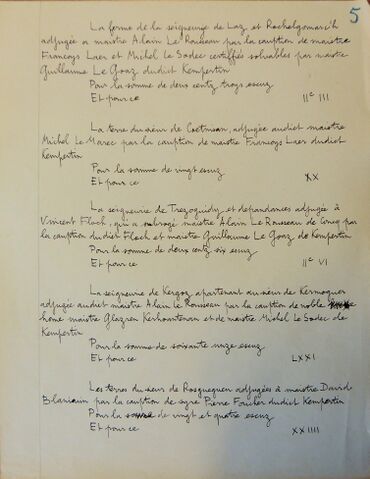 5
La ferme de la seigneurie de Laz et Rochelgomarc'h
adjugée a maistre Alain Le Rousseau par la caution de maistre
Francoys Laer et Michel Le Sodec certiffiés solvables par maistre
Guillaume Le Goaz dudict Kempertin
Pour la somme de deux centz troys escuz
Et pour ce IIc III
La terre du sieur de Coetnisan, adjugée audict maistre
Michel Le Marec par la caution de maistre Francoys Laer dudict
Kempertin
Pour la somme de vingt escuz
Et pour ce XX
La seigneurie de Trezoguidy, et dependances adjugée à
Vincent Floch, qui a subrogé maistre Alain Le Rousseau de par
la caution dudict Floch et maistre Guillaume Le Goaz de Kempertin
Pour la somme de deux centz six escuz
Et pour ce IIc VI
La seigneurie de Kergoz, apartenant au sieur de Kermoguer
adjugée audict maistre Alain le Rousseau par la caution de noble
home maistre Glazren Kerhoantenan et de maistre Michel Le Sodec de
Kempertin
Pour la somme de soixante unze escuz
Et pour ce LXXI
Les terres du sieur de Rosquequen adjugées à maistre David
par la caution de syre Pierre Foucher dudict Kempertin
Pour la somme de vingt et quatre escuz
Et pour ce XXIIII